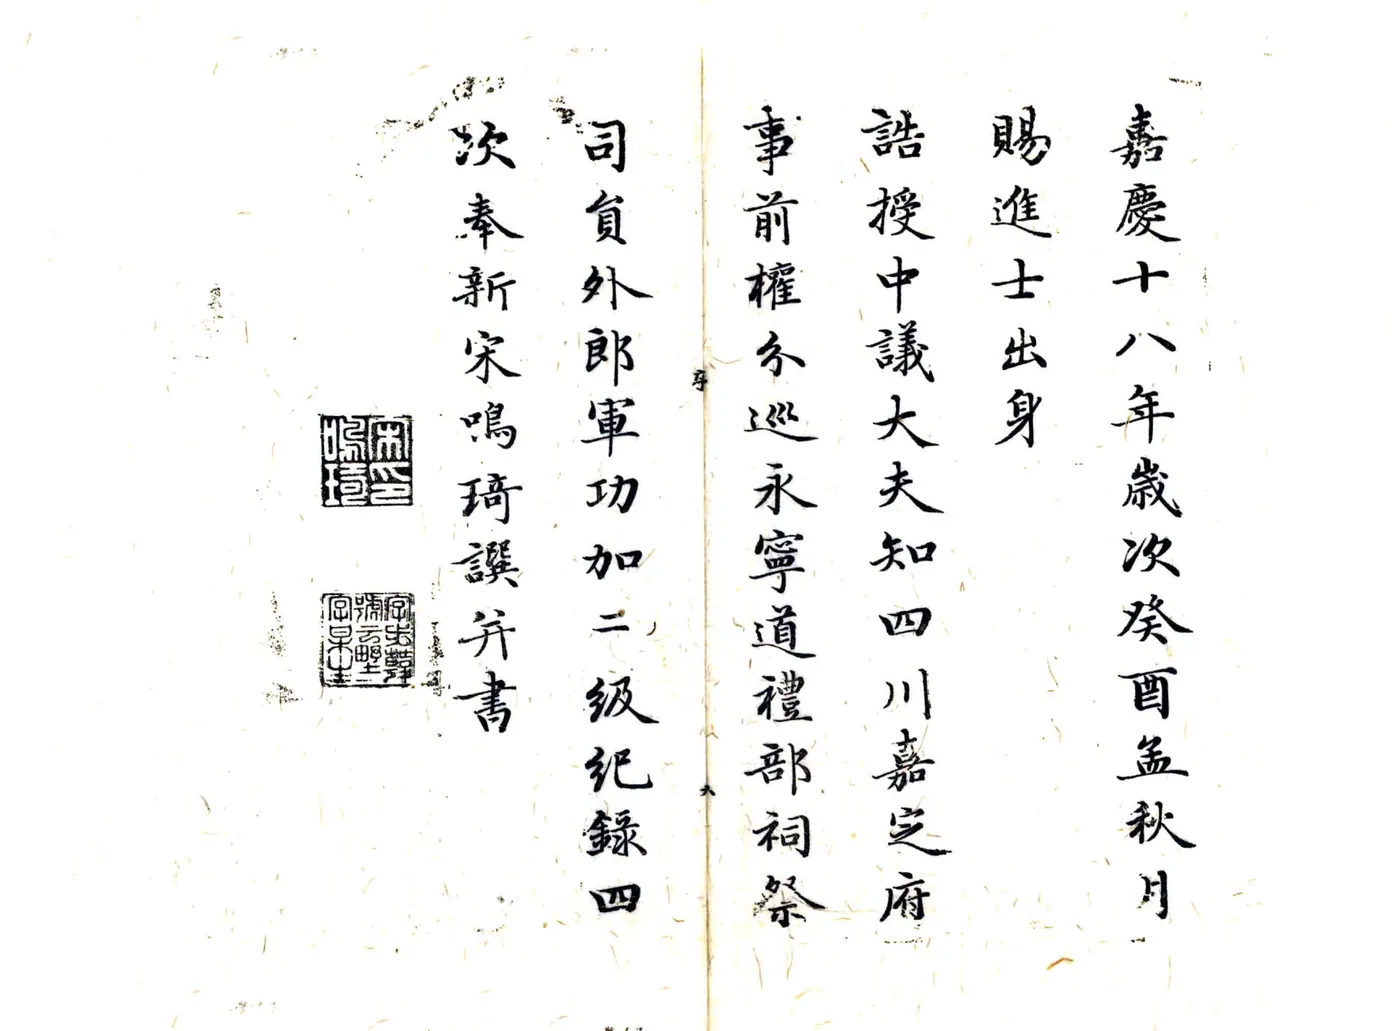 嘉慶十八年歲次癸酉孟秋月
賜進士出身
誥授中議大夫知四川嘉定府
事前權分巡永寧道禮部祠祭
序
六
司員外郎軍功加二級紀錄四
次奉新宋鳴琦譔并書
宋印
鳴琦